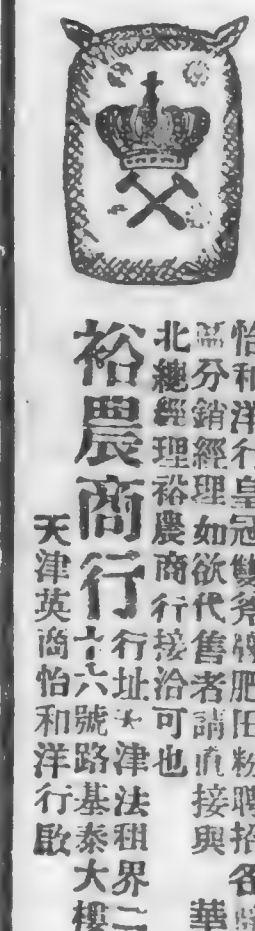 怡和洋行皇冠雙斧牌肥田粉聘招各縣
區分銷經理如欲代售者請直接與華
北總經理裕農商行接洽可也
裕農商行
行址天津法租界二
十六號路基泰大樓
天津英商怡和洋行啟